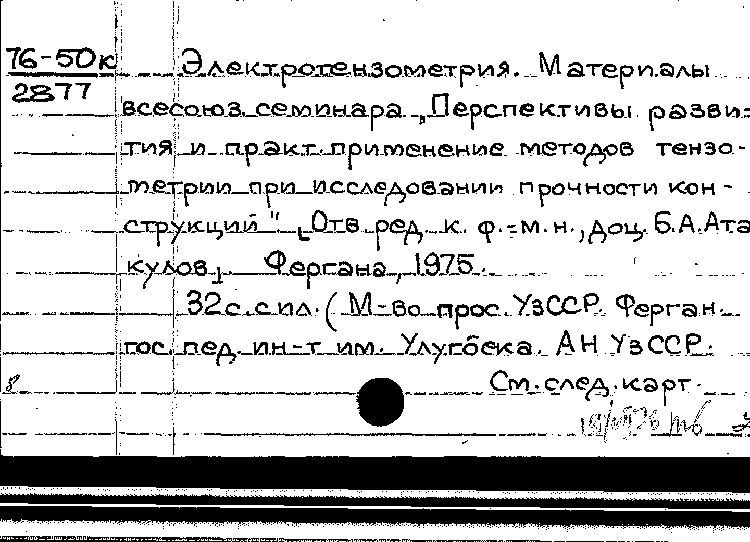 76-50к Электротензометрия. Материалы
2877
всесоюз. семинара „Перспективы разви-
тия и практ. применение методов тензо-
метрии при исследовании прочности кон-
струкций" [Отв. ред. к. ф.-м. н., доц. Б. А. Ата
кулов]. Фергана, 1975.
32 с. с ил. (М-во прос. УзССР. Ферган.
гос. пед. ин-т им. Улугбека. АН УзССР.
См. след. карт.
8